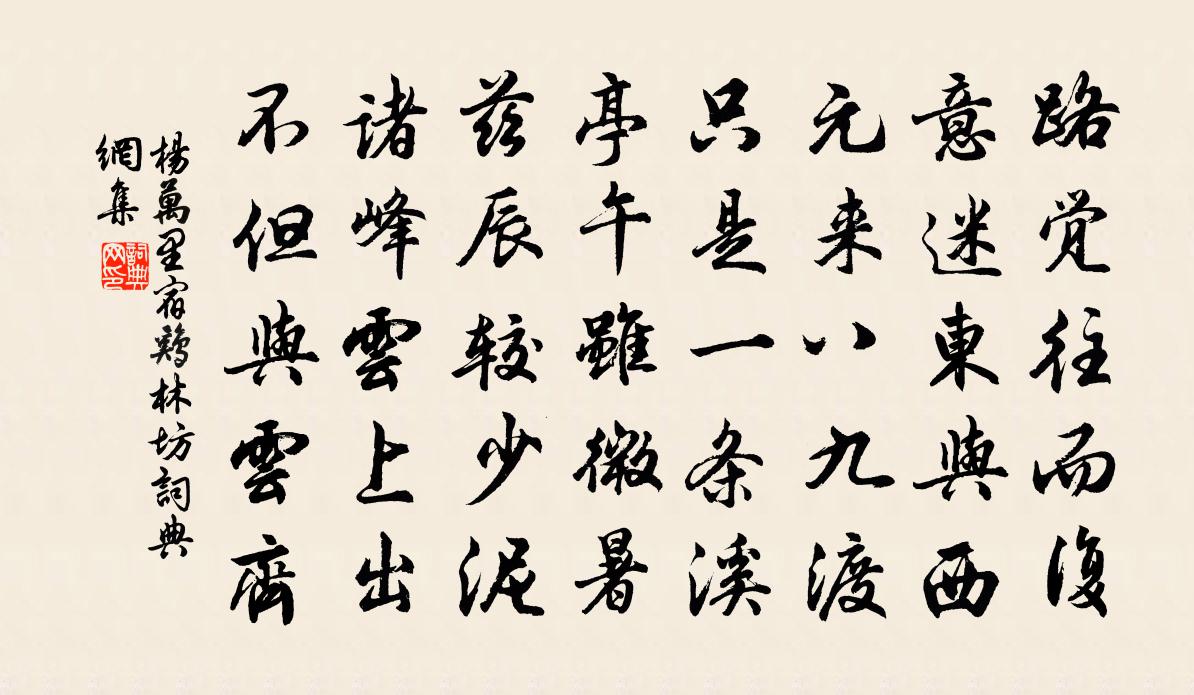 路觉往而復
意迷東與西
元来八九渡
只是一条溪
亭午雖微暑
兹辰较少泥
诸峰雲上出
不但與雲齊
楊萬里宿鵶林坊詞典
網集
詞典
网印